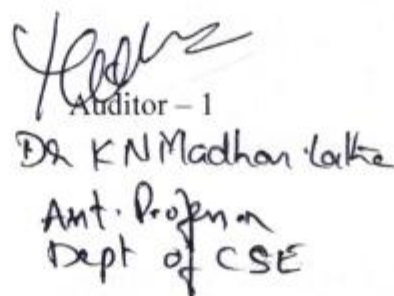 Auditor – 1
Dr K N Madhav
Asst. Professor
Dept of CSE